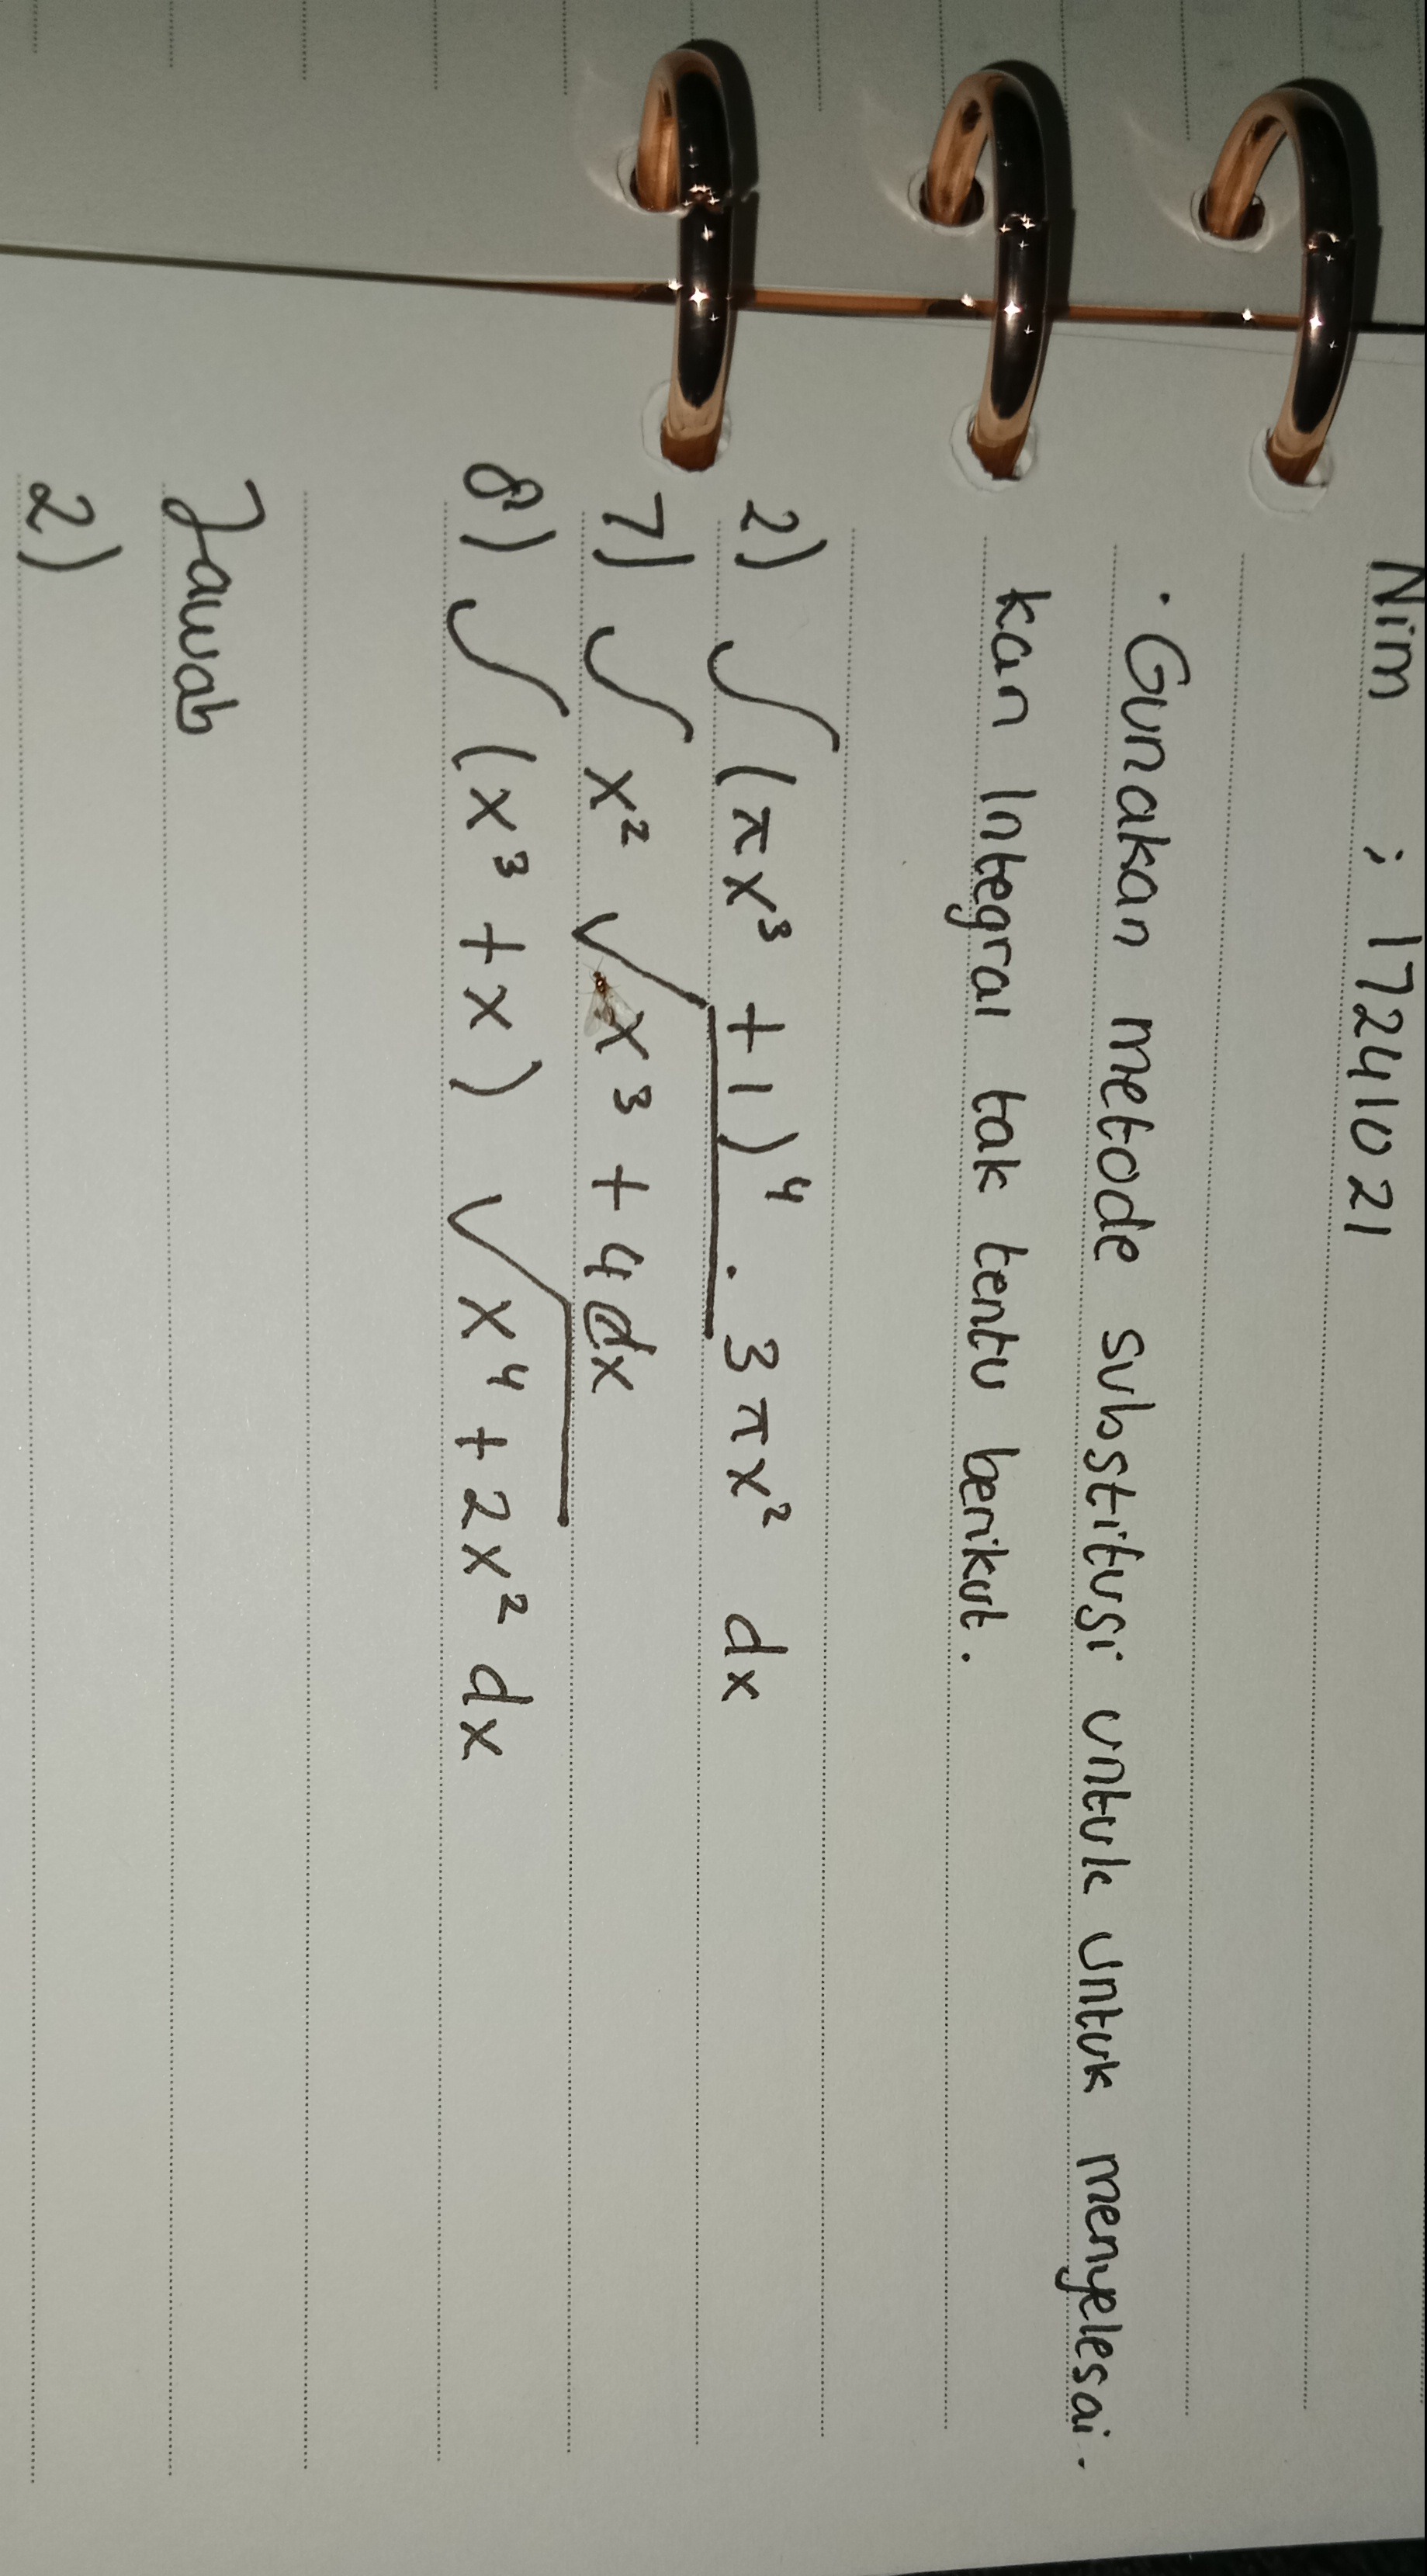 Nim : 17241021
· Gunakan metode substitusi untuk untuk menyelesai.
kan Integral tak tentu berikut.
2) ∫ (πx³ + 1)⁴ . 3πx² dx
7) ∫ x² √x³ + 4 dx
8) ∫ (x³ + x) √x⁴ + 2x² dx
Jawab
2)